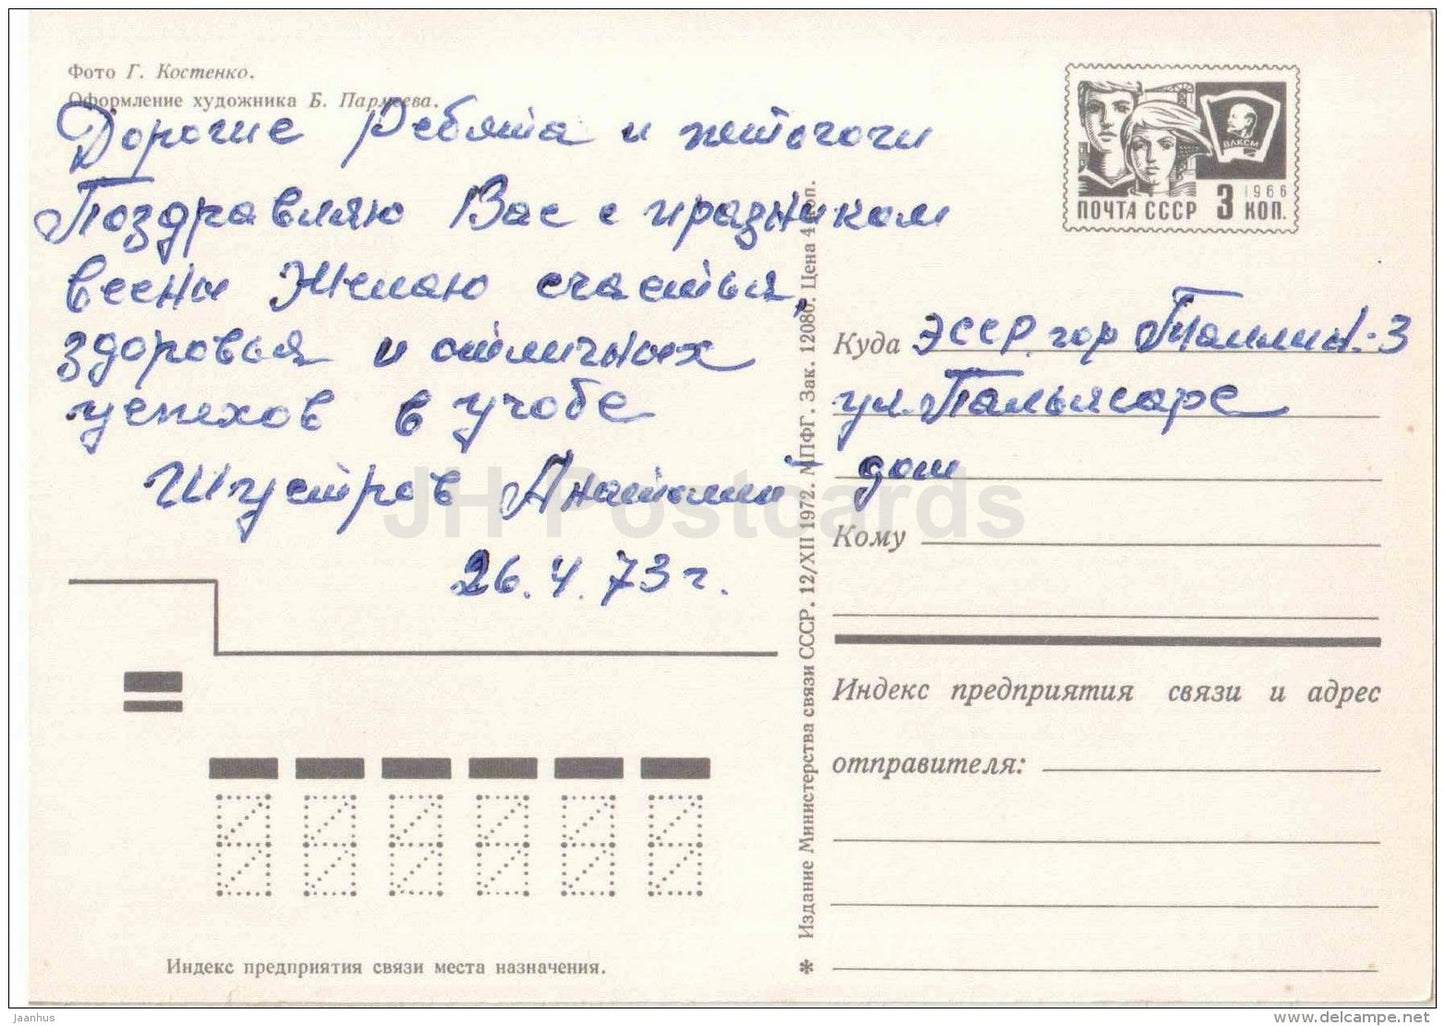 Фото Г. Костенко.
Оформление художника Б. Пармеева.
Дорогие Ребята и
Поздравляю Вас с праздником
весны Желаю счастья,
здоровья и отличных
успехов в учобе
Шустров Анатолий
26.4.73 г.
Индекс предприятия связи места назначения.
Издание Министерства связи СССР. 12/XII 1972. МПФГ. Зак. 12080. Цена 4 коп.
*
ВЛКСМ
1966
ПОЧТА СССР 3 КОП.
Куда ЭССР. гор Таллин-3
ул. Пальясаре
дом
Кому
Индекс предприятия связи и адрес
отправителя:
JH Postcards
Jaanhus
delcampe.net